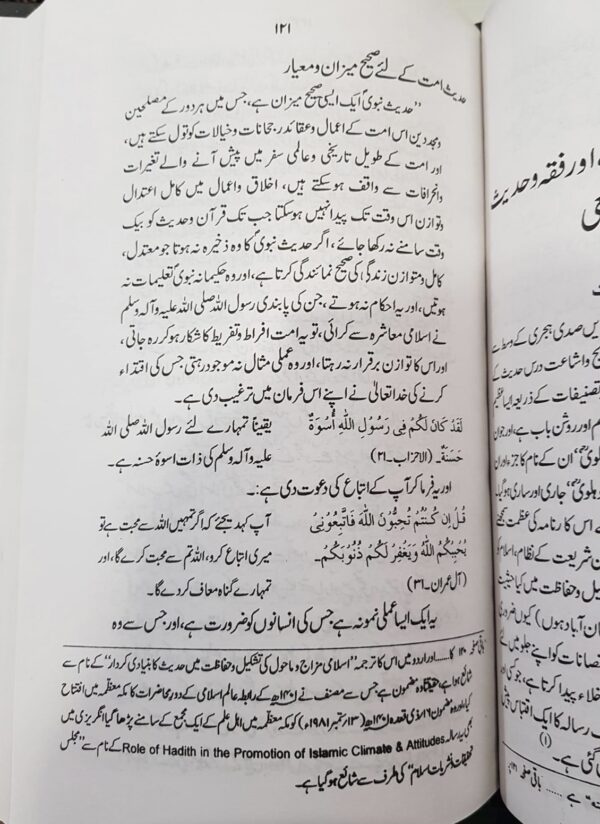 ۱۲۱
حدیث امت کے لئے صحیح میزان و معیار
”حدیث نبوی ایک ایسی صحیح میزان ہے، جس میں ہر دور کے مصلحین
و مجددین اس امت کے اعمال و عقائد، رجحانات و خیالات کو تول سکتے ہیں،
اور امت کے طویل تاریخی و عالمی سفر میں پیش آنے والے تغیرات
و انحرافات سے واقف ہو سکتے ہیں، اخلاق و اعمال میں کامل اعتدال
و توازن اس وقت تک پیدا نہیں ہو سکتا جب تک قرآن و حدیث کو بیک
وقت سامنے نہ رکھا جائے، اگر حدیث نبوی کا وہ ذخیرہ نہ ہوتا جو معتدل،
کامل و متوازن زندگی کی صحیح نمائندگی کرتا ہے، اور وہ حکیمانہ نبوی تعلیمات نہ
ہوتیں، اور یہ احکام نہ ہوتے، جن کی پابندی رسول اللہ صلی اللہ علیہ وآلہ وسلم
نے اسلامی معاشرہ سے کرائی، تو یہ امت افراط و تفریط کا شکار ہو کر رہ جاتی،
اور اس کا توازن برقرار نہ رہتا، اور وہ عملی مثال نہ موجود رہتی جس کی اقتداء
کرنے کی خدا تعالیٰ نے اپنے اس فرمان میں ترغیب دی ہے۔
لَقَدْ كَانَ لَكُمْ فِی رَسُوْلِ اللّٰهِ أُسْوَةٌ یقیناً تمہارے لئے رسول اللہ صلی اللہ
حَسَنَةٌ۔ (الاحزاب۔۲۱) علیہ وآلہ وسلم کی ذات اسوۂ حسنہ ہے۔
اور یہ فرما کر آپ کے اتباع کی دعوت دی ہے:۔
قُلْ إِن كُنتُمْ تُحِبُّونَ اللّٰهَ فَاتَّبِعُونِیْ آپ کہہ دیجئے کہ اگر تمہیں اللہ سے محبت ہے تو
يُحْبِبْكُمُ اللّٰهُ وَيَغْفِرْ لَكُمْ ذُنُوْبَكُمْ۔ میری اتباع کرو، اللہ تم سے محبت کرے گا، اور
(آل عمران۔۳۱) تمہارے گناہ معاف کر دے گا۔
یہ ایک ایسا عملی نمونہ ہے جس کی انسانوں کو ضرورت ہے، اور جس سے وہ
باقی صفحہ ۱۲۰ کا...... اور اردو میں اس کا ترجمہ ”اسلامی مزاج و ماحول کی تشکیل و حفاظت میں حدیث کا بنیادی کردار“ کے نام سے
شائع ہوا ہے، حقیقتاً وہ مضمون ہے جس سے مصنف نے ۱۴۰۱ھ کے رابطہ عالم اسلامی کے دور محاضرات کا مکہ معظمہ میں افتتاح
کیا، اور وہ مضمون ۱۶ ذی قعدہ ۱۴۰۱ھ (۱۳ ستمبر ۱۹۸۱ء) کو مکہ معظمہ میں اہل علم کے ایک مجمع کے سامنے پڑھا گیا انگریزی میں
بھی یہ رسالہ Role of Hadith in the Promotion of Islamic Climate & Attitudes کے نام سے ”مجلس
تحقیقات و نشریات اسلام“ کی طرف سے شائع ہو گیا ہے۔
اور فقہ و حدیث
یں صدی ہجری کے وسط سے
یج و اشاعت درس حدیث کے
تصنیفات کے ذریعہ ایسا عظیم
م اور روشن باب ہے، اور جوان
دہلوی“ جاری اور ساری ہوگیا
ے اس کا رنامہ کی عظمت سمجھنے
ن شریعت کے نظام، اسلام کو
یل و حفاظت میں کیا حیثیت
ان آباد ہوں) کیوں ضروری
(۱)